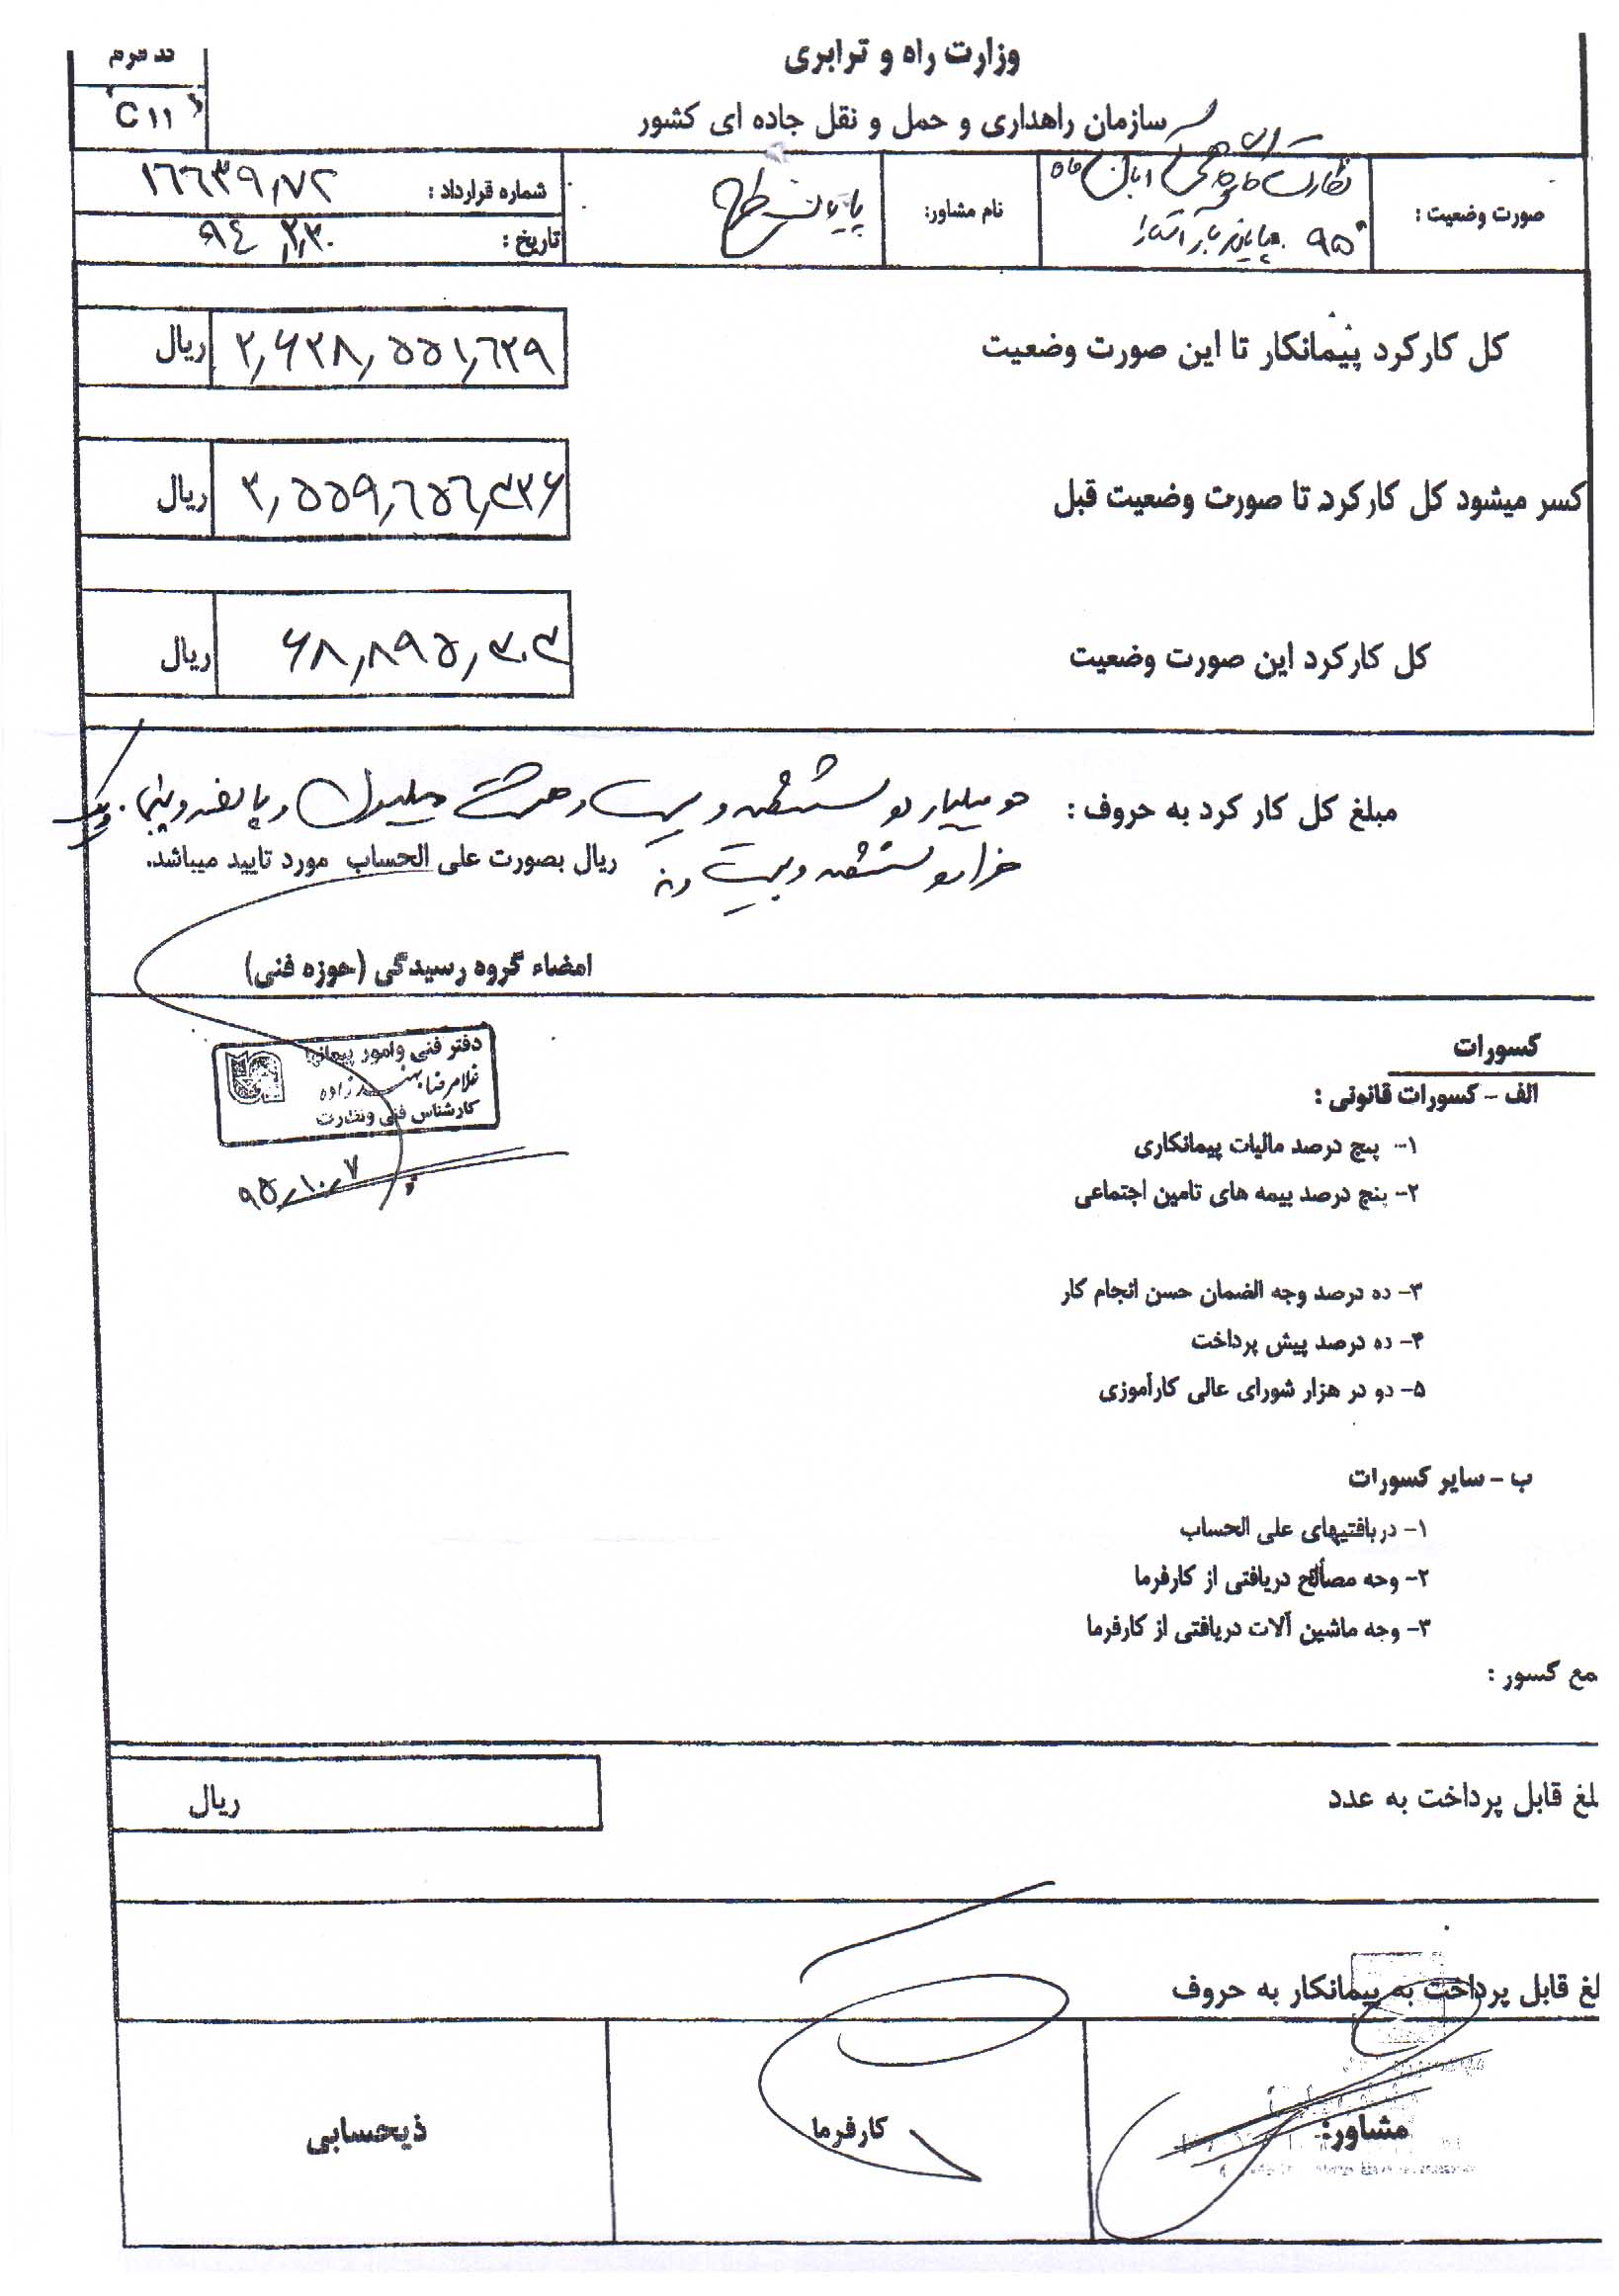 کد فرم
C ۱۱
وزارت راه و ترابری
سازمان راهداری و حمل و نقل جاده ای کشور
صورت وضعیت :
نظارت آبان ماه
۹۵ پایانه بار آستارا
نام مشاور:
پایان طرح
شماره قرارداد : ۱۶۶۳۹٫۷۲
تاریخ : ۹۴٫۲٫۳۰
کل کارکرد پیمانکار تا این صورت وضعیت ۲٫۶۲۸٫۵۵۱٫۶۲۹ ریال
کسر میشود کل کارکرد تا صورت وضعیت قبل ۲٫۵۵۹٫۶۵۶٫۳۲۶ ریال
کل کارکرد این صورت وضعیت ۶۸٫۸۹۵٫۳۰۳ ریال
مبلغ کل کار کرد به حروف : دو میلیارد و ششصد و بیست و هشت میلیون و پانصد و پنجاه و یک
هزار و ششصد و بیست و نه ریال بصورت علی الحساب مورد تایید میباشد.
امضاء گروه رسیدگی (حوزه فنی)
دفتر فنی وامور پیمانها
غلامرضا بهزادزاده
کارشناس فنی ونظارت
۹۵٫۱۰٫۷
کسورات
الف - کسورات قانونی :
۱- پنج درصد مالیات پیمانکاری
۲- پنج درصد بیمه های تامین اجتماعی
۳- ده درصد وجه الضمان حسن انجام کار
۴- ده درصد پیش پرداخت
۵- دو در هزار شورای عالی کارآموزی
ب - سایر کسورات
۱- دریافتیهای علی الحساب
۲- وجه مصالح دریافتی از کارفرما
۳- وجه ماشین آلات دریافتی از کارفرما
مع کسور :
لغ قابل پرداخت به عدد ریال
لغ قابل پرداخت به پیمانکار به حروف
مشاور:
کارفرما
ذیحسابی